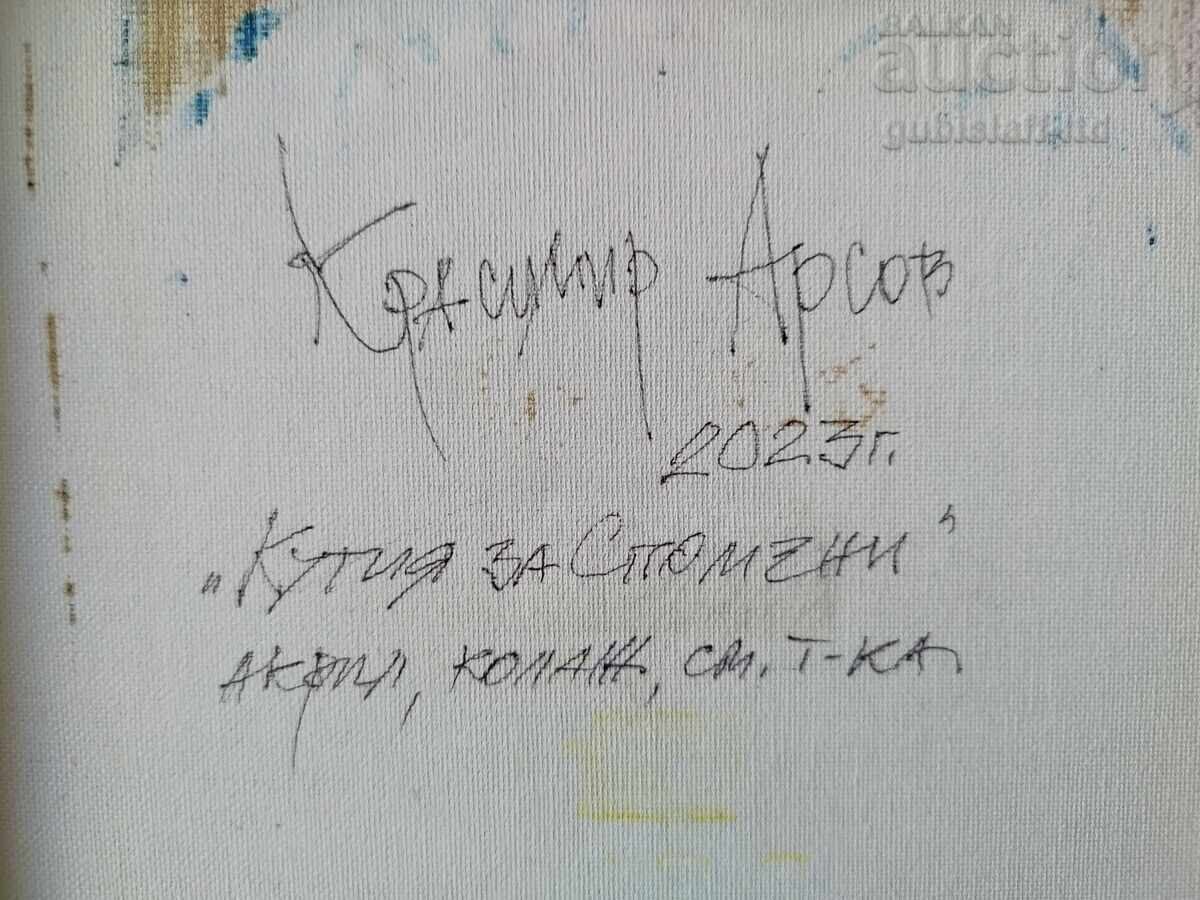 BALKAN
auction
gubislatkla
Красимир Арсов
2023г.
„Кутия за Спомени"
акрил, колаж, см. т-ка